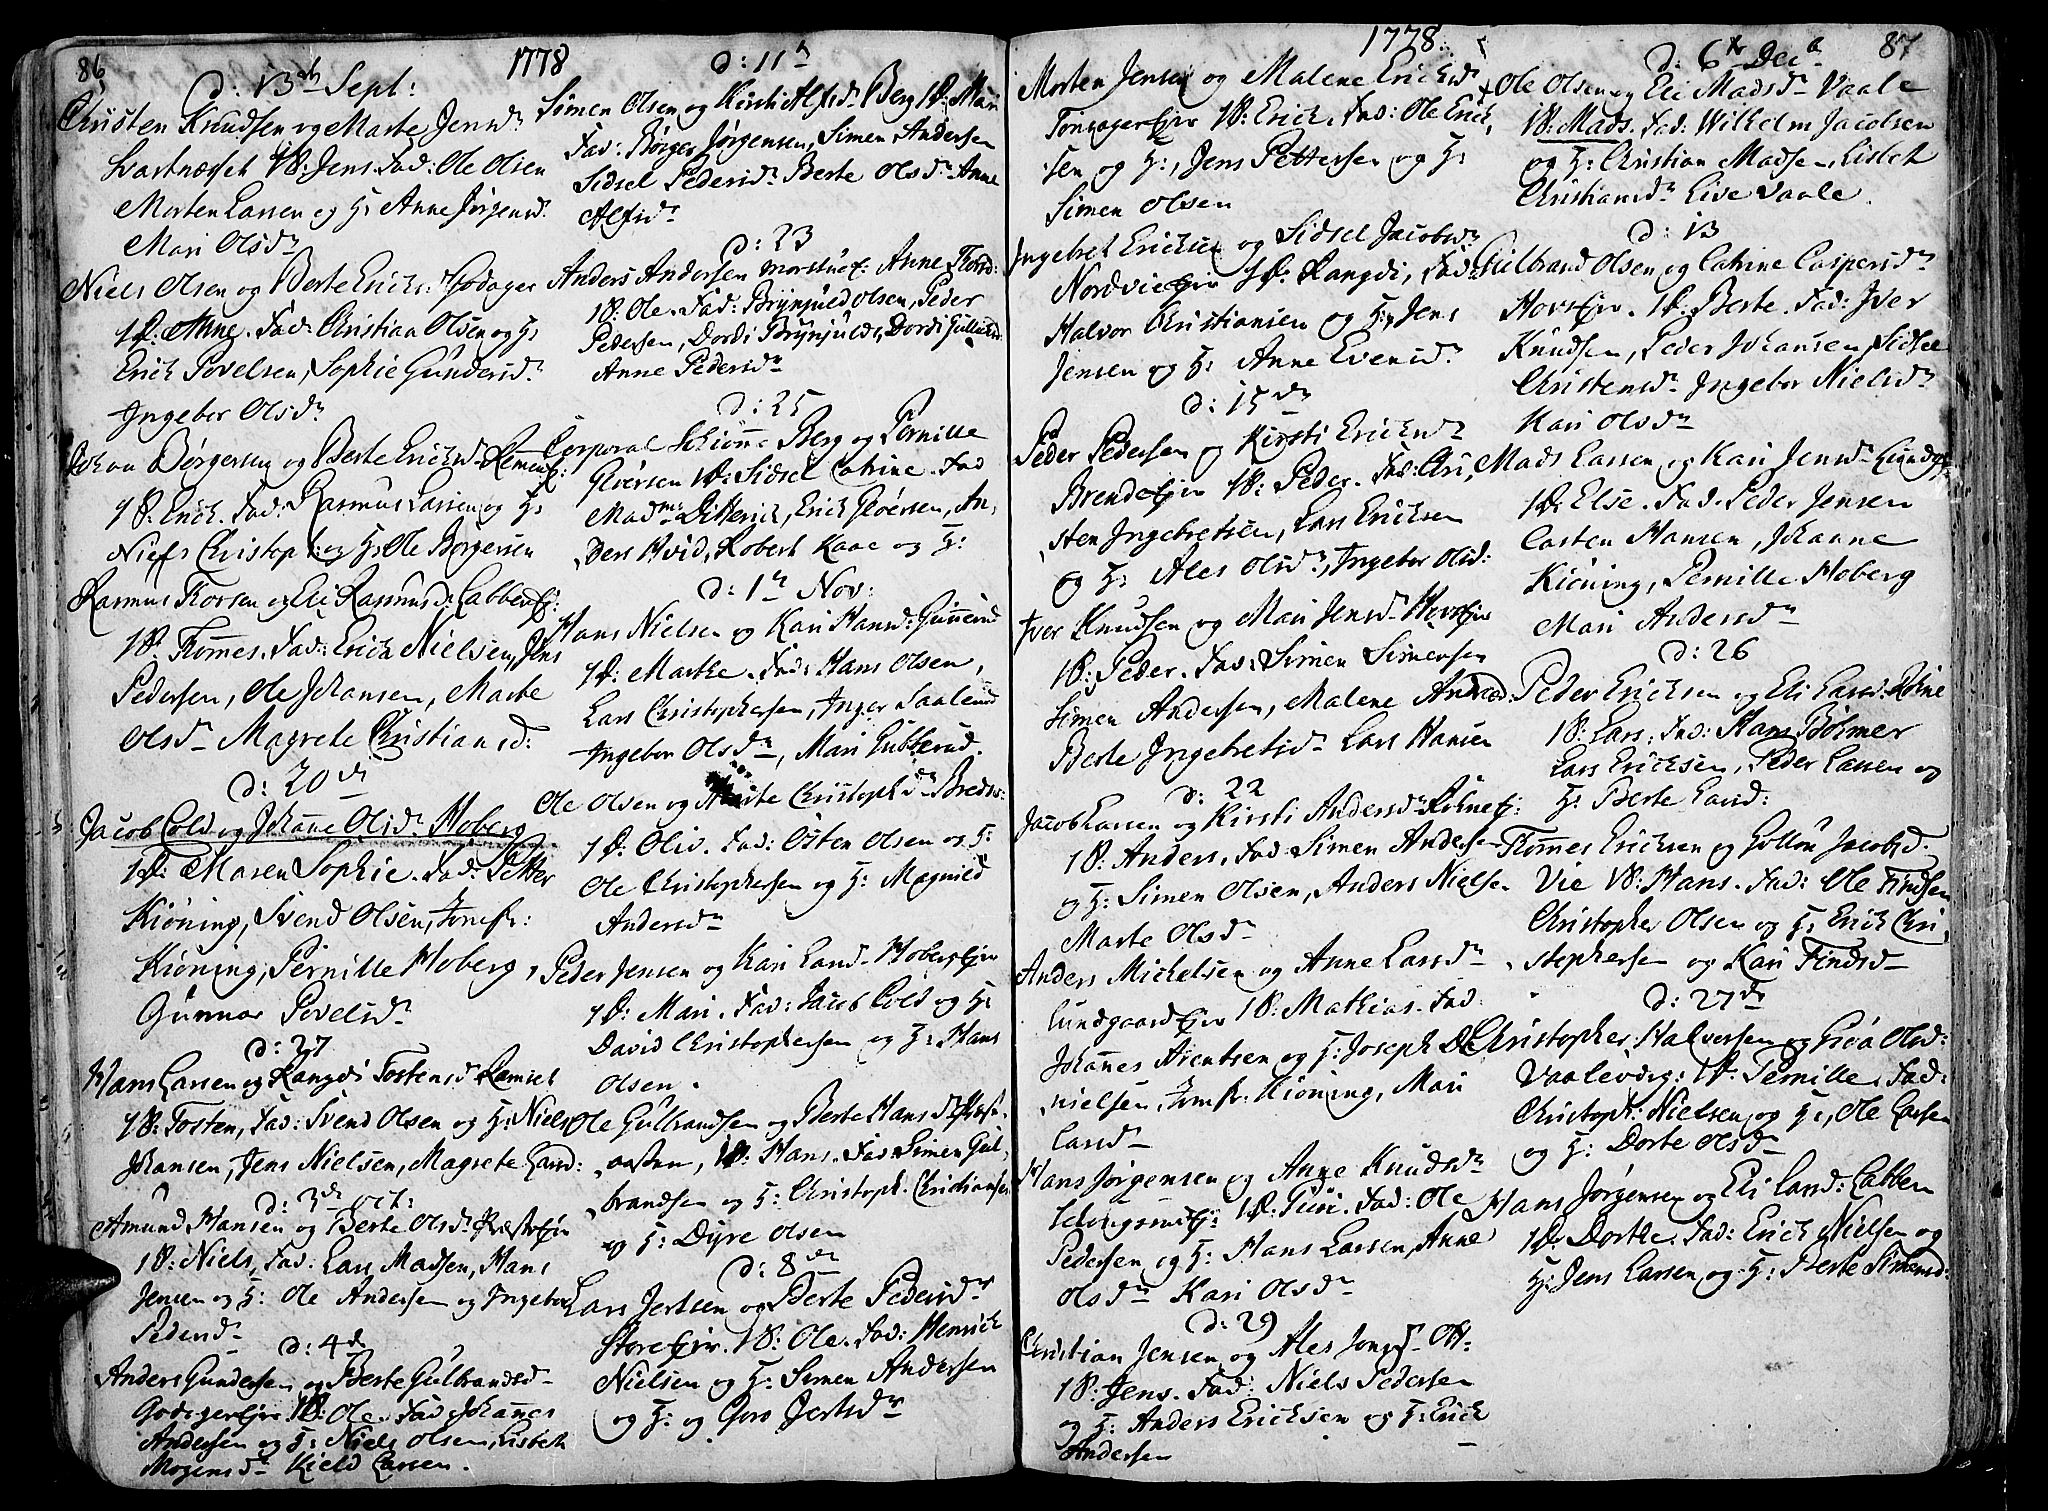 86
1778
d: 13th Sept:
Christen Knudsen og Marte Jensd:
Svartnæsset 1 B: Jens. Fad: Ole Olsen
Morten Larsen og H: Anne Jørgensd:
Mari Olsd:
Niels Olsen og Berte Ericksd:
1 P: Anne. Fad: Christian Olsen og H:
Erick Povelsen, Sophie Gundersd:
Ingebor Olsd:
Johan Børgersen og Berte Ericksd:
1 B: Erick. Fad: Rasmus Larsen og H:
Niels Christoph: og H: Ole Børgersen
Rasmus Thorsen og Eli Rasmusd: Labberej:
1 B: Thomes. Fad: Erick Nielsen, Jens
Pedersen, Ole Johansen, Marte
Olsd: Magrete Christiansd:
d: 20d
Jacob Cold og Johanne Olsd: Hoberg
1 P: Maren Sophie. Fad: Petter
Kiöning, Svend Olsen, Jomfr:
Kiöning, Pernille Hoberg,
Gunnor Povelsd:
d: 27
Hans Larsen og Rangdi Tostensd: Ramset
1 B: Tosten, Fad: Svend Olsen og H: Niels
Johansen, Jens Nielsen, Magrete Larsd:
d: 3d oct:
Amund Hansen og Berte Olsd: Præstejr
1 B: Niels, Fad: Lars Madsen, Hans
Jensen og H: Ole Andersen og Ingebor
Pedersd:
d: 4d
Anders Gundersen og Berte Gulbrandsd:
1 B: Ole. Fad Johannes
Andersen og H: Niels Olsen, Lisbeth
Mogensd: Kield Larsen.
d: 11d
Simen Olsen og Kirsti Alfsd: Berg 1 P: Mari
Fad: Børger Jørgensen, Simen Andersen
Sidsel Pedersd: Berte Olsd: Anne
Alfsd:
d: 23
Anders Andersen Morstuej: Anne Thord:
1 B: Ole. Fad: Brynjuld Olsen, Peder
Pedersen, Dordi Brynjulds, Dordi Gulliksd:
Anne Pedersd:
d: 25
Corporal Schiønne Berg og Pernille
Gløersen 1 P: Sidsel Catrine. Fad
Madm: Ditterick, Erick Gløersen, An,
ders Hvid, Robert Kaae og H:
d: 1d Nov:
Hans Nielsen og Kari Hansd: Gunnerud
1 P: Marthe. Fad: Hans Olsen,
Lars Christophersen, Inger Saalerud
Ingebor Olsd:, Mari Gutterud.
Ole Olsen og Marte Christophd:
1 P: Oliv. Fad: Østen Olsen og H:
Ole Christophersen og H: Magnild
Andersd:
Peder Jensen og Kari Larsd: Hobergejr
1 P: Mari. Fad: Jacob Cold og H:
David Christophersen og H: Hans
Olsen.
Ole Gulbrandsen og Berte Hansd:
1 B: Hans. Fad Simen Gul,
brandsen og H: Christoph: Christiansen
og H: Dyre Olsen
d: 8d
Lars Jertsen og Berte Pedersd:
Storeejr. 1 B: Ole. Fad: Henrick
Nielsen og H: Simen Andersen
og H: og Goro Jertsd:
1778
87
Morten Jensen og Malene Ericksd:
1 B: Erick. Fad: Ole Erick,
sen og H:, Jens Pettersen og H:
Simen Olsen
Ingebret Ericksen og Sidsel Jacobsd:
Nordvieejr 1 P: Rangdi, Fad:
Halvor Christiansen og H: Jens
Jensen og H: Anne Evensd:
d: 15de
Peder Pedersen og Kirsti Ericksd:
Brendeejr 1 B: Peder. Fad: Chri,
sten Ingebretsen, Lars Ericksen
og H: Ales Olsd:, Ingebor Olsd:
Iver Knudsen og Mari Jensd: Hovsejr
1 B: Peder. Fad: Simen Simensen
Simen Andersen, Malene Andersd:
Berte Ingebretsd: Lars Hansen
d: 22
Jacob Larsen og Kirsti Andersd: Rohneej:
1 B: Anders, Fad Simen Andersen
og H: Simen Olsen, Anders Nielsen
Marte Olsd:
Anders Michelsen og Anne Larsd:
Lundgaardejr 1 B: Mathias. Fad
Johannes Arentsen og H: Joseph Da
nielsen, Jomfr. Kiöning, Mari
Larsd:
Hans Jørgensen og Anne Knudsd:
1 P: Guri. Fad: Ole
Pedersen og H: Hans Larsen, Anne
Olsd: Kari Olsd:
d: 29
Christian Jensen og Ales Jonsd:
1 B: Jens. Fad: Niels Pedersen
og H: Anders Ericksen og H: Erick
Andersen
d: 6te Decb
Ole Olsen og Eli Madsd: Vaale
1 B: Mads. Fad: Wilhelm Jacobsen
og H: Christian Madsen, Lisbet
Christiansd: Live Vaale.
d: 13
Gulbrand Olsen og Catrine Caspersd:
Hovsejr. 1 P: Berte. Fad: Iver
Knudsen, Peder Johansen, Sidsel
Christensd: Ingebor Nielsd:
Kari Olsd:
Mads Larsen og Kari Jensd:
1 P: Else. Fad. Peder Jensen
Carsten Hansen, Johanne
Kiöning, Pernille Hoberg
Mari Andersd:
d: 26
Peder Ericksen og Eli Larsd: Rohne
1 B: Lars. Fad: Hans Böhmer
Lars Ericksen, Peder Larsen og
H: Berte Larsd:
Thomes Ericksen og Gollou Jacobsd:
Vie 1 B: Hans. Fad: Ole Findsen
Christopher Olsen og H: Erick Chri,
stophersen og Kari Findsd:
d: 27de
Christopher Halvorsen og Groa Olsd:
1 P: Pernille. Fad:
Christoph: Nielsen og H:, Ole Larsen
og H: Dorte Olsd:
Hans Jørgensen og Eli Larsd: Labben
1 P: Dorthe. Fad: Erick Nielsen og
H: Jens Larsen og H: Berte Simensd: